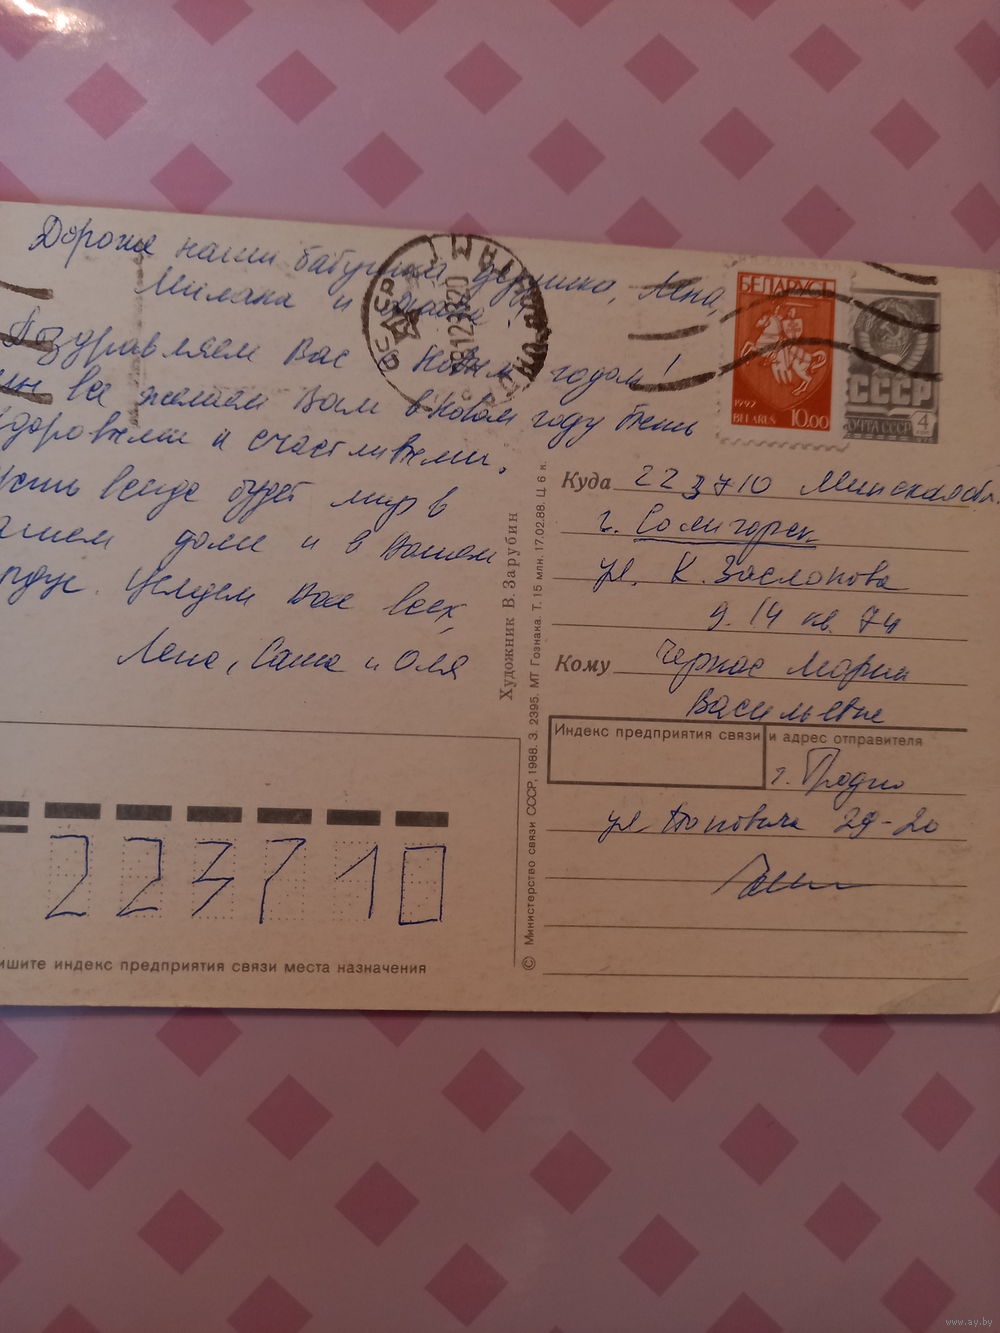 Дорогие наши бабушка, дедушка, Лена,
Милана и
Поздравляем Вас с Новым годом!
мы все желаем Вам в Новом году быть
здоровыми и счастливыми.
Пусть всегда будет мир в
вашем доме и в Вашем
Целуем Вас всех,
Лена, Саша и Оля
БЕЛАРУСЬ
1992
BELARUS 10.00
СССР
ПОЧТА СССР 4
Куда 223710 Минская обл.
г. Солигорск
ул. К. Заслонова
д. 14 кв. 74
Кому Черкас Марии
Васильевне
Индекс предприятия связи и адрес отправителя
г. Гродно
ул. Поповича 29-20
Художник В. Зарубин
© Министерство связи СССР, 1988. З. 2395. МТ Гознака. Т. 15 млн. 17.02.88. Ц. 6 к.
223710
пишите индекс предприятия связи места назначения
www.ay.by